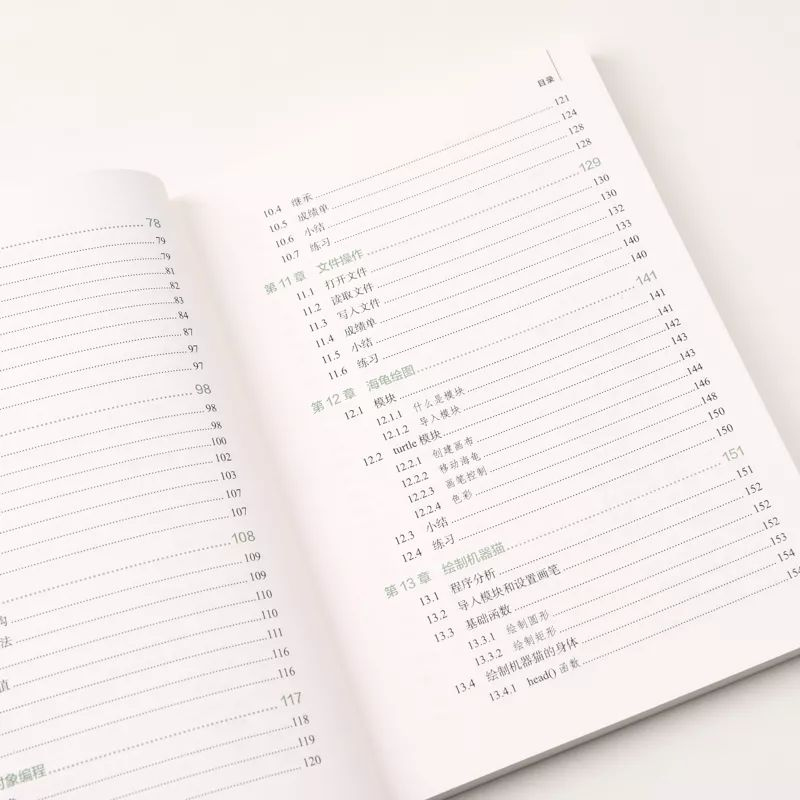 78
79
79
81
82
83
84
87
97
97
98
98
98
100
102
103
107
107
108
109
构 109
法 110
110
值 111
116
116
对象编程 117
118
119
120
目录
10.4 继承 121
10.5 成绩单 124
10.6 小结 128
10.7 练习 128
第11章 文件操作 129
11.1 打开文件 130
11.2 读取文件 130
11.3 写入文件 132
11.4 成绩单 133
11.5 小结 140
11.6 练习 140
第12章 海龟绘图 141
12.1 模块 141
12.1.1 什么是模块 141
12.1.2 导入模块 142
12.2 turtle 模块 143
12.2.1 创建画布 143
12.2.2 移动海龟 144
12.2.3 画笔控制 146
12.2.4 色彩 148
12.3 小结 150
12.4 练习 150
第13章 绘制机器猫 151
13.1 程序分析 151
13.2 导入模块和设置画笔 152
13.3 基础函数 152
13.3.1 绘制圆形 152
13.3.2 绘制矩形 153
13.4 绘制机器猫的身体 154
13.4.1 head() 函数 154